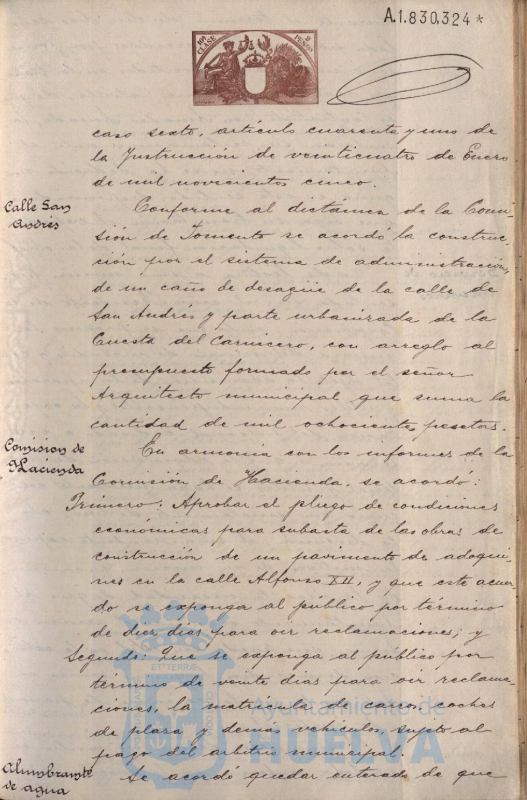 A.1.830,324*
10ª CLASE
2 PESETAS
caso sexto, artículo cuarenta y uno de
la Instrucción de veinticuatro de Enero
de mil novecientos cinco.
Calle San
Andrés
Conforme al dictámen de la Comi-
sión de Fomento se acordó la construc-
ción por el sistema de administración,
de un caño de desagüe de la calle de
San Andrés y parte urbanizada de la
Cuesta del Carnicero, con arreglo al
presupuesto formado por el señor
Arquitecto municipal que suma la
cantidad de mil ochocientas pesetas.
Comision de
Hacienda
En armonia con los informes de la
Comisión de Hacienda, se acordó:
Primero: Aprobar el pliego de condiciones
económicas para subasta de las obras de
construcción de un pavimento de adoqui-
nes en la calle Alfonso XII, y que este acuer-
do se exponga al público por término
de diez dias para oir reclamaciones; y
Segundo: Que se exponga al público por
término de veinte dias para oir reclama-
ciones, la matricula de carros, coches
de plaza y demás vehiculos sujeto al
pago del arbitrio municipal.
Alumbramte
de agua
Se acordó quedar enterado de que
Ayuntamiento de
HUELVA